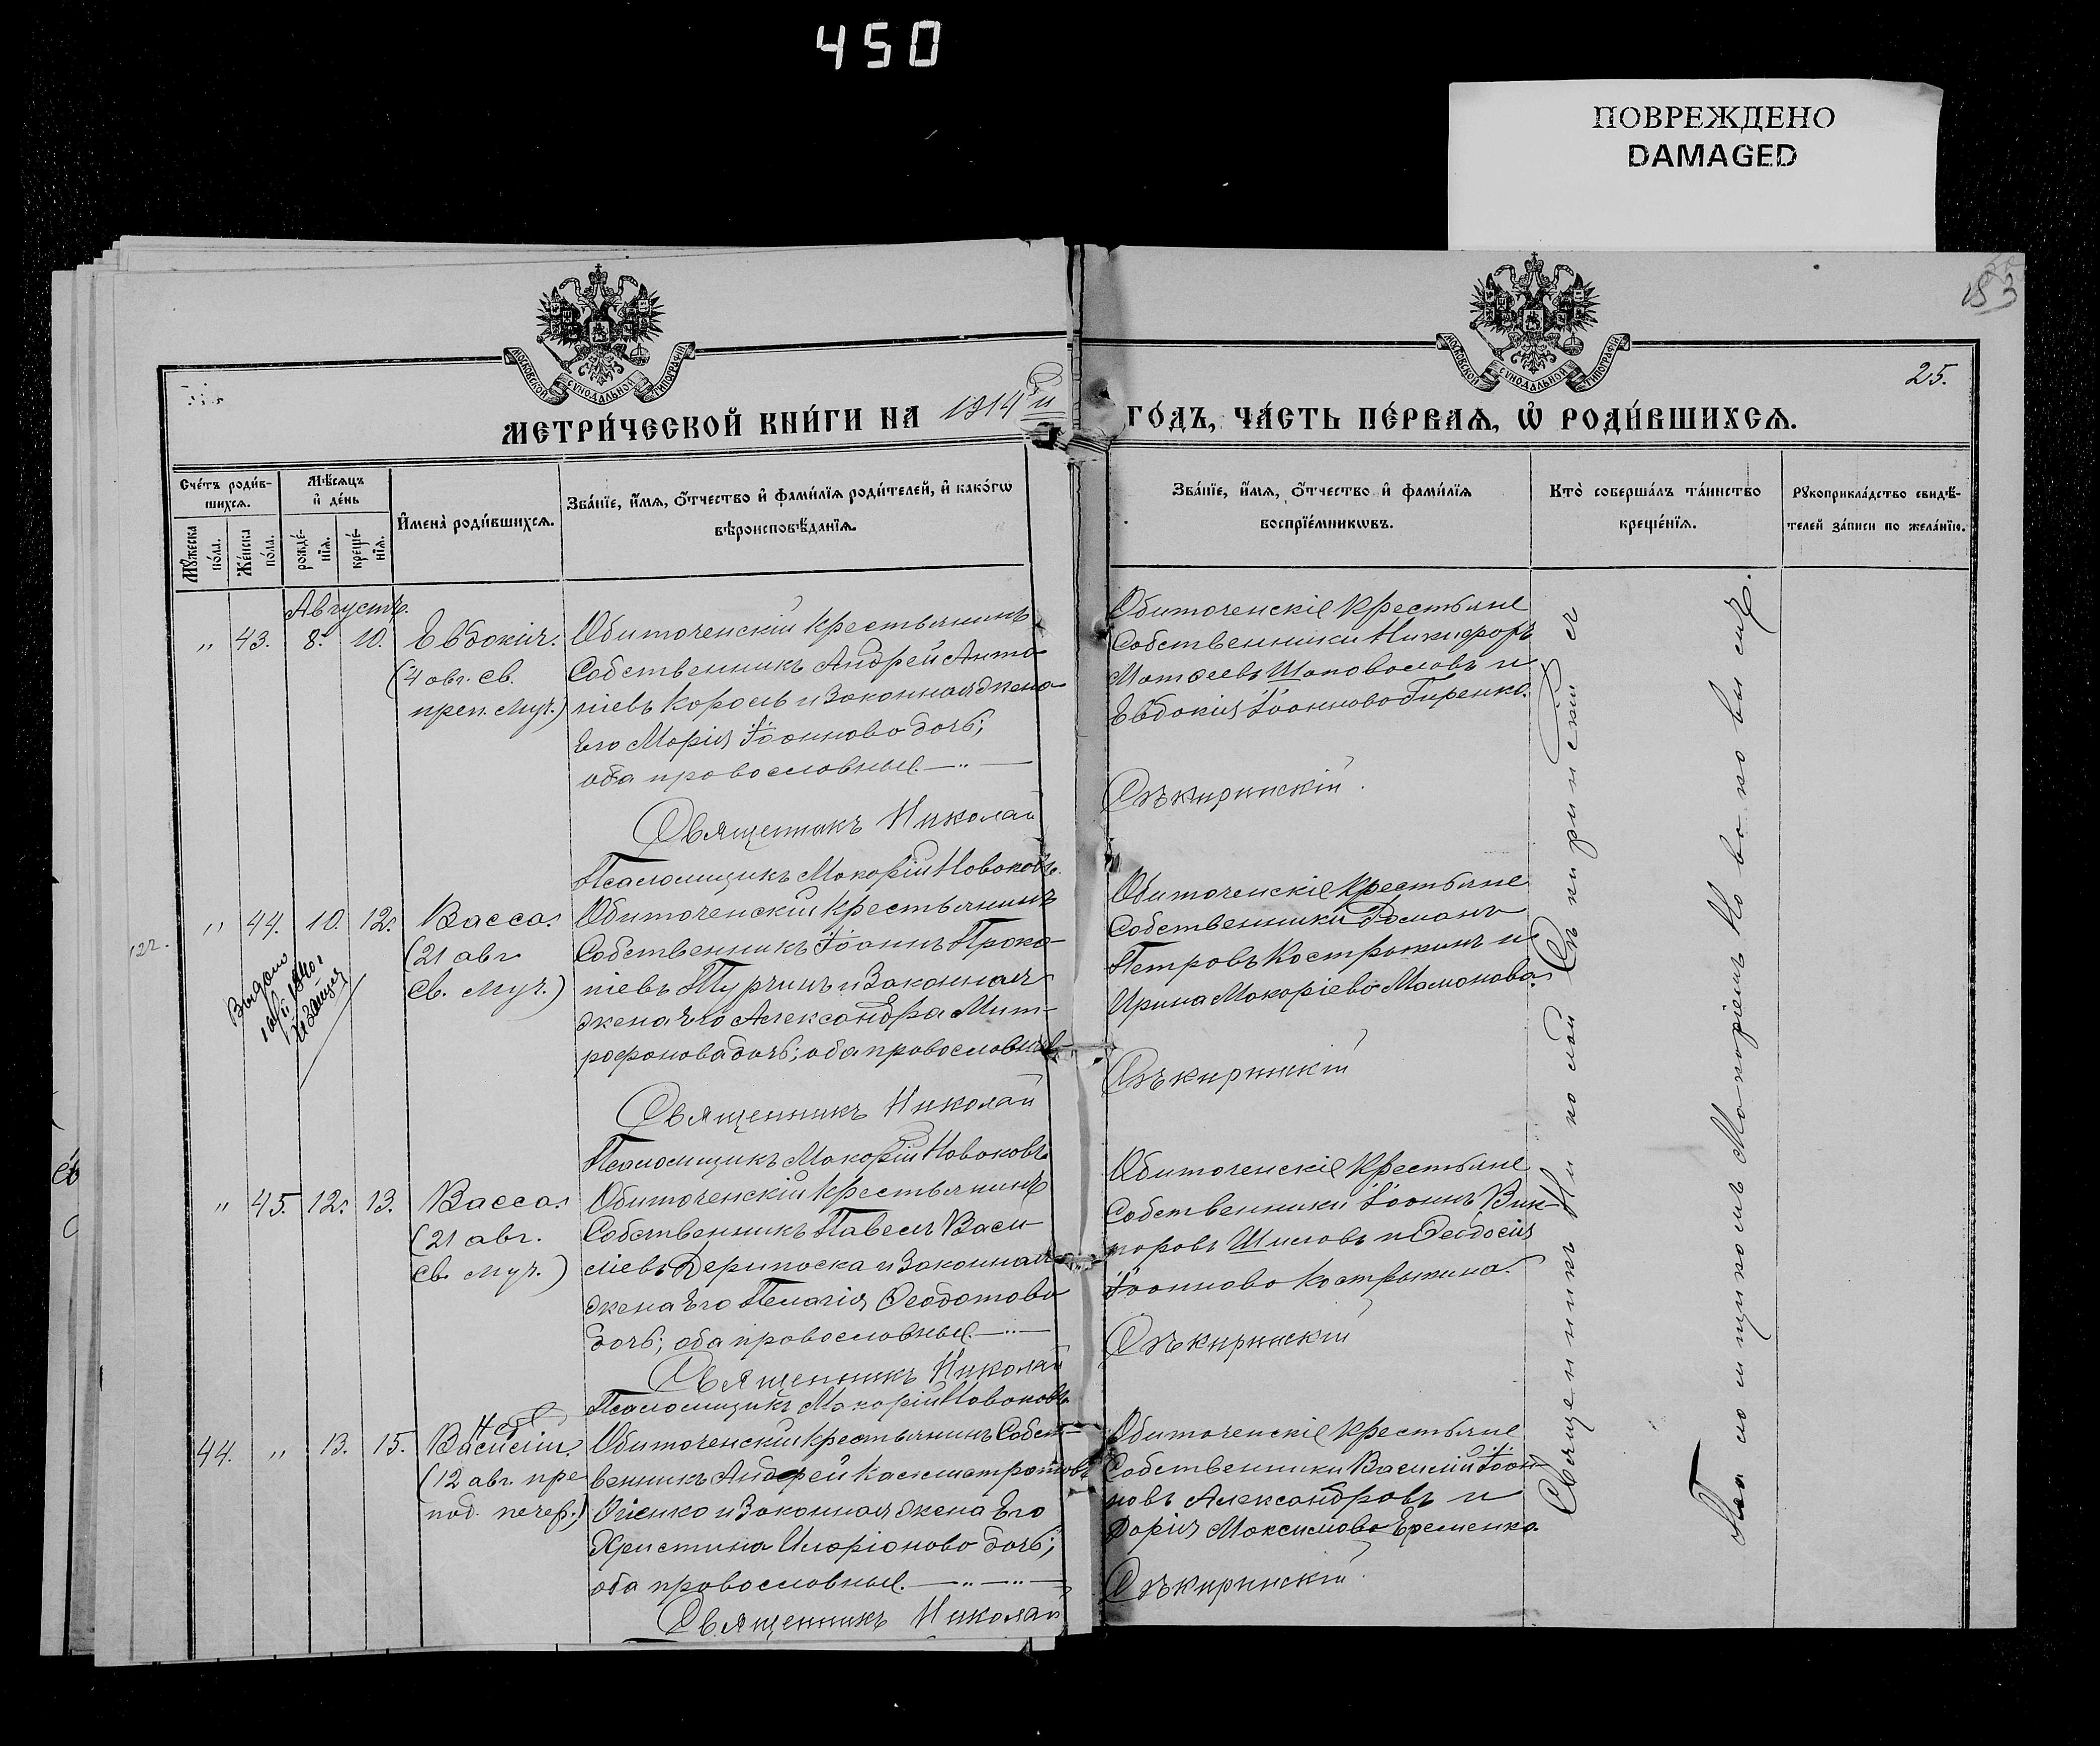 450
ПОВРЕЖДЕНО
DAMAGED
МОСКОВСКОЙ СУНОДАЛЬНОЙ ТИПОГРАФІИ
МОСКОВСКОЙ СУНОДАЛЬНОЙ ТИПОГРАФІИ
25.
МЕТРИ́ЧЕСКОЙ КНИ́ГИ НА 1914й ГО́ДЪ, ЧА́СТЬ ПЕ́РВАѦ, Ѡ҆ РОДИ́ВШИХСѦ.
Сче́тъ роди́в-
шихсѧ.
Мꙋ́жеска по́ла.
Же́нска по́ла.
Мѣ́сѧцъ
и҆ де́нь
рожде́-
нїѧ.
креще́-
нїѧ.
И҆мена̀ роди́вшихсѧ.
Зва́нїе, и҆́мѧ, ѻ҆́тчество и҆ фами́лїѧ роди́телей, и҆ како́гѡ
вѣроисповѣ́данїѧ.
Зва́нїе, и҆́мѧ, ѻ҆́тчество и҆ фами́лїѧ
воспрїе́мникѡвъ.
Кто̀ соверша́лъ та́инство
креще́нїѧ.
Рꙋкоприкла́дство свидѣ́-
телей за́писи по жела́нїю.
Августъ.
" 43. 8. 10. Евдокія.
(4 авг. св.
преп. муч.)
Обиточенскій крестьянинъ
Собственникъ Андрей Анто-
ніевъ Король и Законная жена
Его Марія Іоаннова дочь;
оба православные.
Священникъ Николай
Псаломщикъ Макарій Новаковъ.
Обиточенскіе Крестьяне
Собственники Никифоръ
Матѳеевъ Шаповаловъ и
Евдокія Іоаннова Гиренко.
Сѣкиринскій.
" 44. 10. 12. Васса.
(21 авг.
Св. муч.)
Выдано
Обиточенскій крестьянинъ
Собственникъ Іоаннъ Проко-
піевъ Турчинъ и Законная
жена Его Александра Мит-
рофанова дочь; оба православные
Священникъ Николай
Псаломщикъ Макарій Новаковъ
Обиточенскіе Крестьяне
Собственники Романъ
Петровъ Костржкинъ и
Ирина Макаріева Мамонова.
Сѣкиринскій
" 45. 12. 13. Васса.
(21 авг.
Св. муч.)
Обиточенскій крестьянинъ
Собственникъ Павелъ Васи-
ліевъ Дерипаска и Законная
жена Его Пелагія Ѳеодотова
дочь; оба православные.
Священникъ Николай
Псаломщикъ Макарій Новаковъ
Обиточенскіе Крестьяне
Собственники Іоаннъ Вик-
торовъ Шиловъ и Ѳеодосія
Іоаннова Костржкина.
Сѣкиринскій
44. " 13. 15. Василій.
(12 авг. пре
под. печер.)
Обиточенскій крестьянинъ Собст-
венникъ Андрей Каллистратовъ
и Законная жена Его
Христина Иларіонова дочь;
оба православные.
Священникъ Николай
Обиточенскіе Крестьяне
Собственники Василій Іоан-
новъ Александровъ и
Дарія Максимова Еременко.
Сѣкиринскій
Священникъ Николай Сѣкиринскій съ
Псаломщикомъ Макаріемъ Новаковымъ.